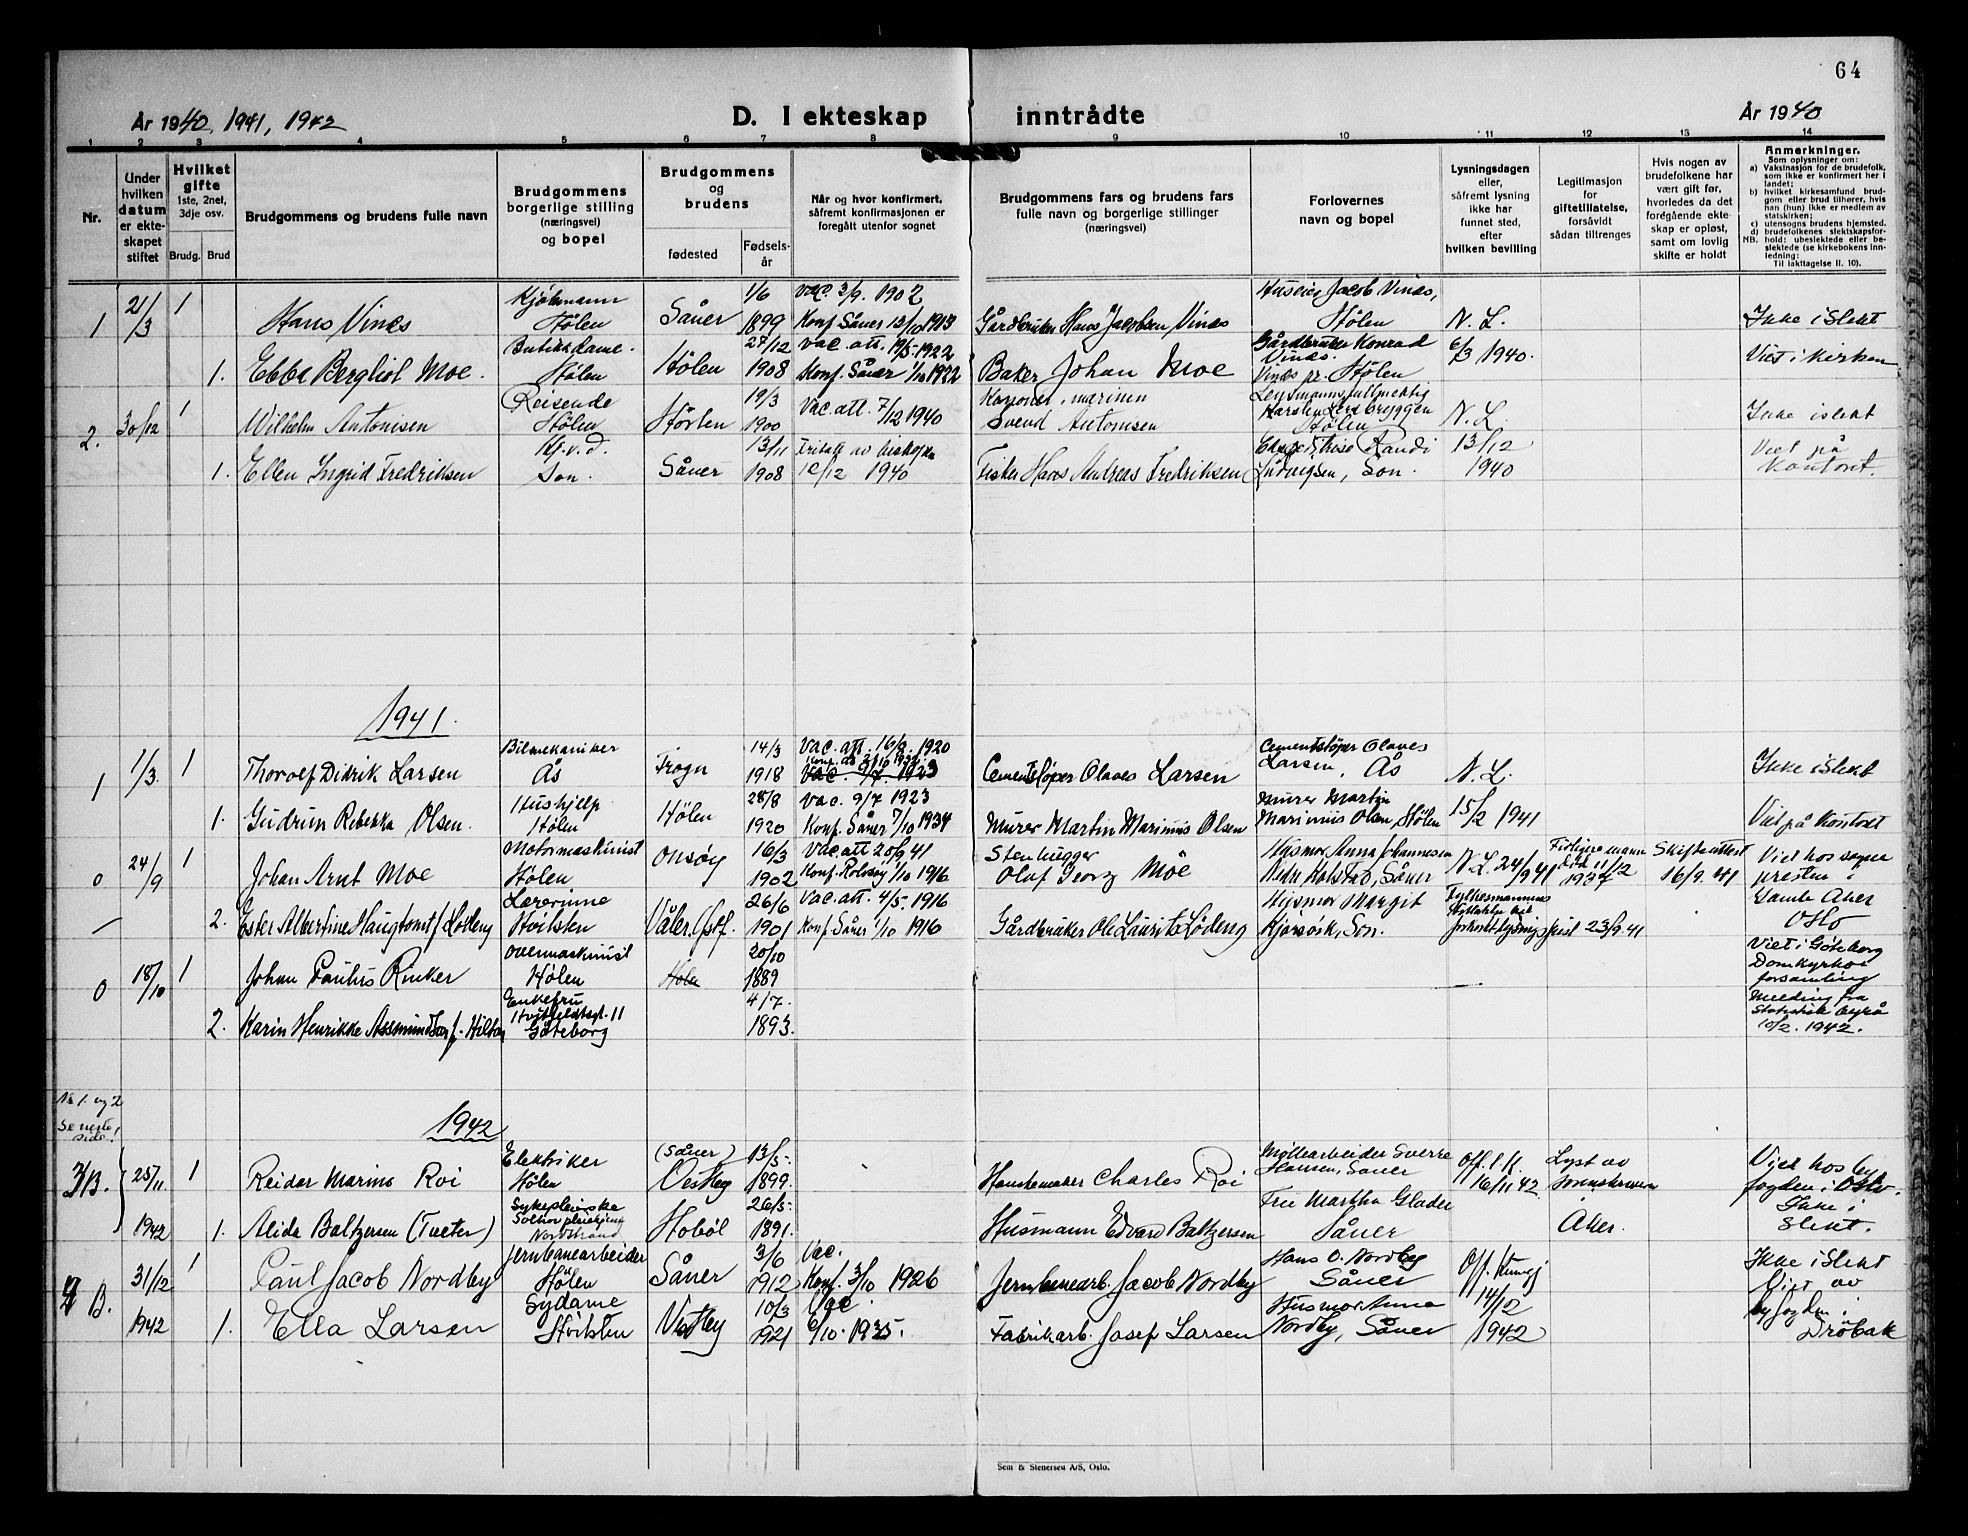 64
År 1940, 1941, 1942
D. I ekteskap inntrådte
År 1940
1 2 3 4 5 6 7 8 9 10 11 12 13 14
Nr.
Under hvilken datum er ekteskapet stiftet
Hvilket gifte 1ste, 2net, 3dje osv.
Brudg. Brud
Brudgommens og brudens fulle navn
Brudgommens borgerlige stilling (næringsvei) og bopel
Brudgommens og brudens
fødested
Fødselsår
Når og hvor konfirmert, såfremt konfirmasjonen er foregått utenfor sognet
Brudgommens fars og brudens fars fulle navn og borgerlige stillinger (næringsvei)
Forlovernes navn og bopel
Lysningsdagen eller, såfremt lysning ikke har funnet sted, efter hvilken bevilling
Legitimasjon for giftetillatelse, forsåvidt sådan tiltrenges
Hvis nogen av brudefolkene har vært gift før, hvorledes da det foregående ekteskap er opløst, samt om lovlig skifte er holdt
Anmerkninger.
Som oplysninger om:
a) Vaksinasjon for de brudefolk, som ikke er konfirmert her i landet;
b) hvilket kirkesamfund brudgom eller brud tilhører, hvis han (hun) ikke er medlem av statskirken;
c) utensogns brudens hjemsted.
d) brudefolkenes slektskapsforhold: ubeslektede eller beslektede (se kirkebokens innledning:
NB. Til iakttagelse II. 10).
1 21/3 1 Hans Vines Kjøbmann Hølen Såner 1/6 1899 Vac. 2/9. 1902 Konf Såner 12/10 1913 Gårdbruker Hans Jacobsen Vines Huseier Jacob Vines, Hølen N. L. Ikke i slekt
1. Ebba Bergliot Moe. Butikkdame. Hølen Hølen 27/12 1908 Vac. att. 19/5. 1922 Konf. Såner 1/10 1922 Baker Johan Moe Gårdbruker Konrad Vines. Vines pr. Hølen 6/3 1940. Viet i kirken
2. 30/12 1 Wilhelm Antonisen Reisende Hølen Horten 19/3 1900 Vac. att. 7/12 1940 Svend Antonisen Lensmannsfullmektig Karsten Hølen N. L. Ikke i slekt
1. Ellen Ingrid Fredriksen Hj.v.d. Son. Såner 13/11 1908 Fritatt av biskopen 10/12 1940 Fisker Hans Andreas Fredriksen Randi Ludvigsen, Son. 13/12 1940 Viet på kontoret.
1941.
1 1/3. 1 Thorolf Didrik Larsen Bilmekaniker Ås Frogn 14/3 1918 Vac. att. 1920 Cementstøper Olaves Larsen Cementstøper Olaves Larsen, Ås N. L. Ikke i slekt
1. Gudrun Rebekka Olsen. Hushjelp Hølen Hølen 28/8 1920 Vac. 9/7 1923 Konf. Såner 7/10 1934 Murer Martin Marinius Olsen Murer Martin Marinius Olsen, Hølen 15/2 1941 Viet på kontoret
0 24/9 1 Johan Arnt Moe Motormaskinist Hølen Onsøy 16/3 1902 Vac. att 20/9 41 Konf. Rolvsøy 1/10 1916 Stenhugger Olaf Georg Moe Husmor Anna Johannesen Såner N. L. 24/9 41 1937 Skifteattest 16/9. 41 Viet hos sogne presten i Gamle Aker Oslo
2. Ester Albertine Haugtomt f. Lødeng Lærerinne Hvitsten Våler, Østf. 26/6 1901 Vac. att. 4/5. 1916 Konf Såner 1/10 1916 Gårdbruker Ole Laurits Lødeng Husmor Margit Son. 23/9.41
0 18/10 1 Johan Paulus Rinker Overmaskinist Hølen Hølen 20/10 1889 Viet i Göteborg Domkyrko forsamling
2. Karin Henrikke Assmundson f. Enkefru 11 Göteborg 4/7. 1893. Melding fra Statistisk byrå 10/2. 1942.
Nr 1. og 2 Se neste side!
1942
3B. 25/11 1942 1 Reidar Marino Roi Elektriker Hølen (Såner) Vestby 13/5. 1899. Charles Roi Møllearbeider Sverre Hansen, Såner Off. l. k. 16/11 42 Lyst av Sorenskriveren i Aker. Viet hos byfogden i Oslo. Ikke i slekt.
1. Alida Baltzersen (Tveter) Sykepleierske Nordstrand Hobøl 26/5- 1891. Husmann Edvard Baltzersen Fru Martha Glader Såner
B. 31/12 1942 1 Paul Jacob Nordby Jernbanearbeider Hølen Såner 3/6 1912 Vac. Konf. 3/10 1926 Jernbanearb. Jacob Nordby Hans O. Nordby Såner Off. kunngj 14/12 1942 Ikke i slekt Gift av byfogden i Drøbak
1. Ella Larsen Sydame Hvitsten Vestby 10/3 1921 Vac. 6/10. 1935. Fabrikarb. Josef Larsen Husmor Anna Nordby, Såner
Sem & Stenersen A/S, Oslo.